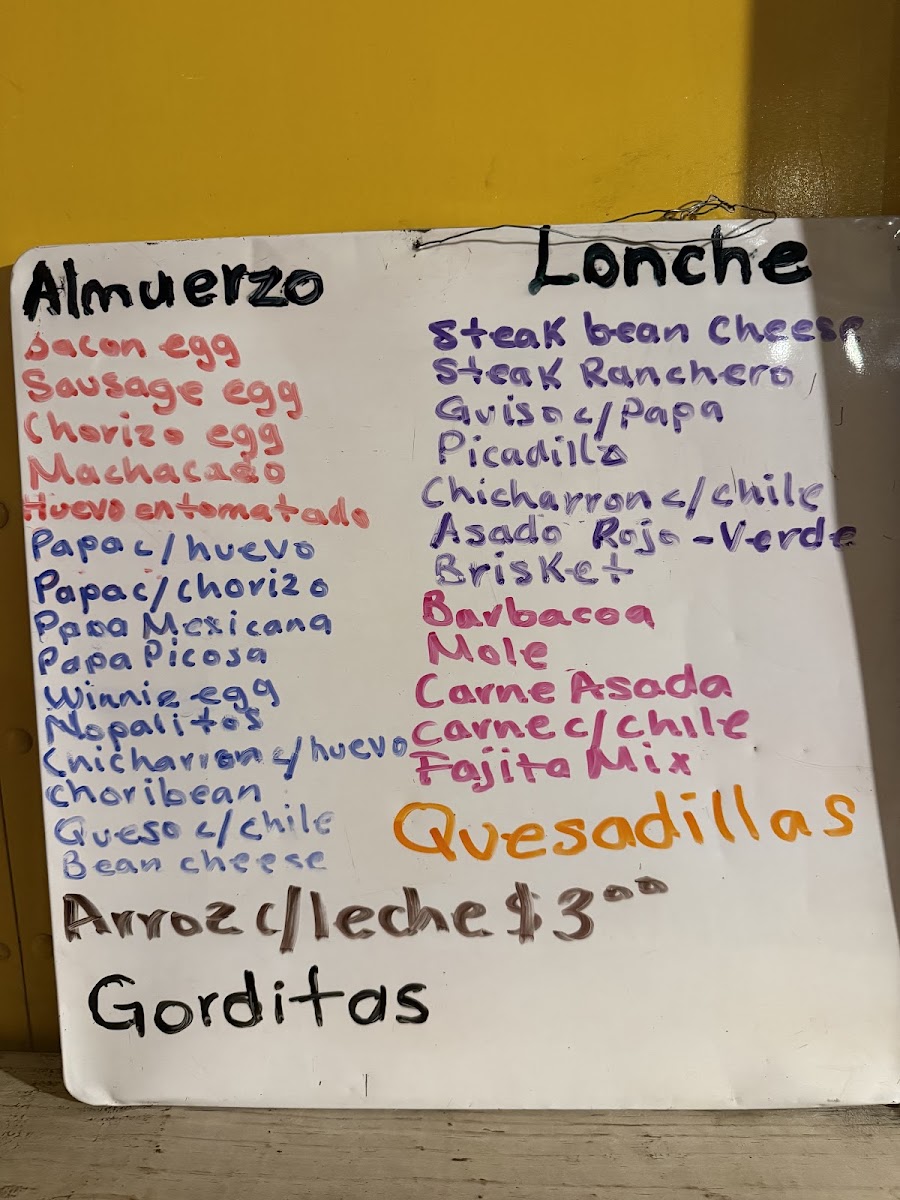 Almuerzo
Bacon egg
Sausage egg
Chorizo egg
Machacado
Huevo entomatado
Papa c/huevo
Papa c/chorizo
Papa Mexicana
Papa Picosa
Winnie egg
Nopalitos
Chicharron c/huevo
Choribean
Queso c/chile
Bean cheese
Lonche
Steak bean Cheese
Steak Ranchero
Guiso c/Papa
Picadillo
Chicharron c/chile
Asado Rojo-Verde
Brisket
Barbacoa
Mole
Carne Asada
Carne c/chile
Fajita Mix
Quesadillas
Arroz c/leche $3⁰⁰
Gorditas